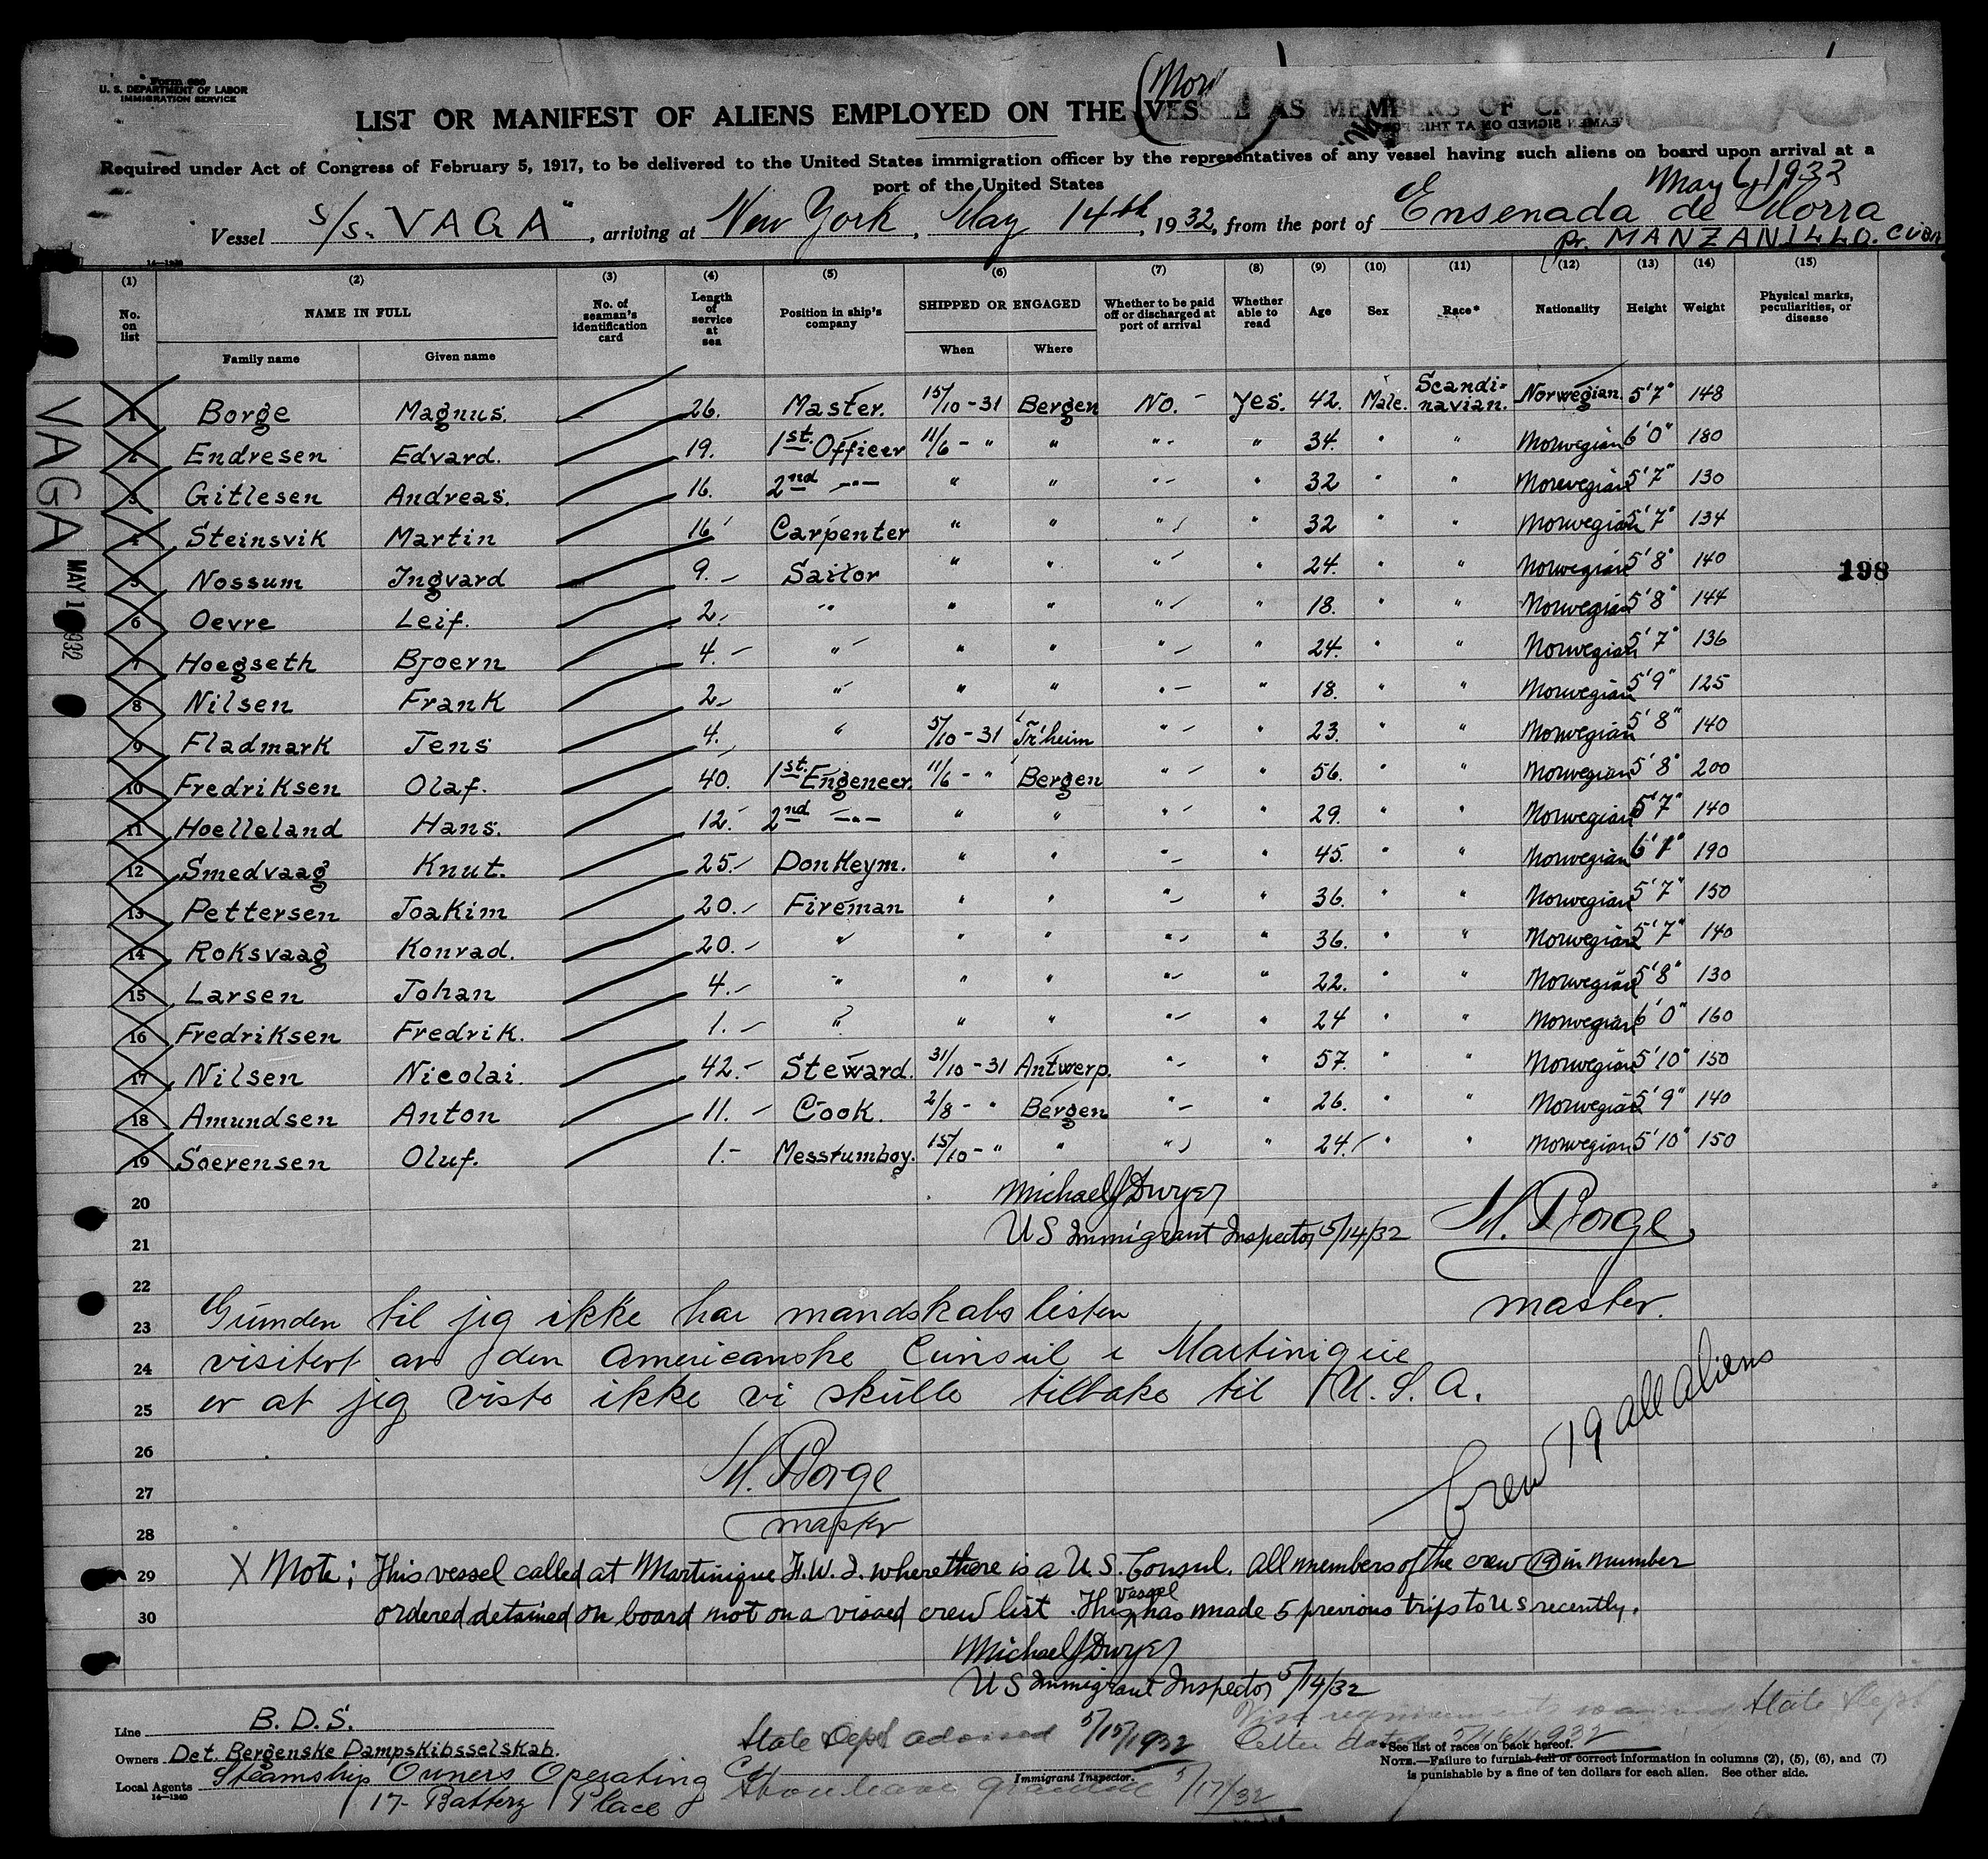 Form 680
U. S. DEPARTMENT OF LABOR
IMMIGRATION SERVICE
LIST OR MANIFEST OF ALIENS EMPLOYED ON THE VESSEL AS MEMBERS OF CREW
Required under Act of Congress of February 5, 1917, to be delivered to the United States immigration officer by the representatives of any vessel having such aliens on board upon arrival at a
port of the United States
May 6, 1932
Vessel S/S. "VAGA", arriving at New York, May 14th, 1932, from the port of Ensenada de Morra
pr. MANZANILLO. CUBA
14—1240
(1) (2) (3) (4) (5) (6) (7) (8) (9) (10) (11) (12) (13) (14) (15)
No. on list NAME IN FULL No. of seaman's identification card Length of service at sea Position in ship's company SHIPPED OR ENGAGED Whether to be paid off or discharged at port of arrival Whether able to read Age Sex Race* Nationality Height Weight Physical marks, peculiarities, or disease
Family name Given name When Where
1 Borge Magnus. 26. Master. 15/10 - 31 Bergen No. - yes. 42. Male. Scandi-navian. Norwegian 5'7" 148
2 Endresen Edvard. 19. 1st. Officer 11/6 - " " " - " 34. " " Norwegian 6'0" 180
3 Gitlesen Andreas. 16. 2nd -"- " " " - " 32 " " Norwegian 5'7" 130
4 Steinsvik Martin 16 Carpenter " " " " 32 " " Norwegian 5'7" 134
5 Nossum Ingvard 9. Sailor " " " " 24. " " Norwegian 5'8" 140
6 Oevre Leif. 2. " " " " " 18. " " Norwegian 5'8" 144
7 Hoegseth Bjoern 4. " " " " " 24. " " Norwegian 5'7" 136
8 Nilsen Frank 2 " " " " " 18. " " Norwegian 5'9" 125
9 Fladmark Jens 4. " 5/10 - 31 Tr'heim " " 23. " " Norwegian 5'8" 140
10 Fredriksen Olaf. 40. 1st. Engeneer. 11/6 - " Bergen " " 56. " " Norwegian 5'8" 200
11 Hoelleland Hans. 12. 2nd -"- " " " " 29. " " Norwegian 5'7" 140
12 Smedvaag Knut. 25. Donkeym. " " " " 45. " " Norwegian 6'1" 190
13 Pettersen Joakim 20. Fireman " " " " 36. " " Norwegian 5'7" 150
14 Roksvaag Konrad. 20. " " " " " 36. " " Norwegian 5'7" 140
15 Larsen Johan 4. " " " " " 22. " " Norwegian 5'8" 130
16 Fredriksen Fredrik. 1. " " " " " 24 " " Norwegian 6'0" 160
17 Nilsen Nicolai. 42. Steward. 31/10 - 31 Antwerp. " " 57. " " Norwegian 5'10" 150
18 Amundsen Anton 11. Cook. 2/8 - " Bergen " " 26. " " Norwegian 5'9" 140
19 Soerensen Oluf. 1. Messrumboy. 15/10 - " " " " 24. " " Norwegian 5'10" 150
VAGA
MAY 1932
198
20
21
Michael J Dwyer
US Immigrant Inspector 5/14/32
M. Borge
master.
22
23 Grunden til jeg ikke har mandskabslisten
24 visitert av den Americanske Cunsul i Martinique
25 er at jeg viste ikke vi skulle tilbake til U.S.A.
26
27
28
M. Borge
master
Crew 19 all aliens
29 X Note; This vessel called at Martinique F.W.I. where there is a U S. Consul. All members of the crew (19) in number
30 ordered detained on board not on a visaed crew list. This vessel has made 5 previous trips to U S recently.
Michael J Dwyer
US Immigrant Inspector 5/14/32
Line B. D. S.
Owners Det. Bergenske Dampskibsselskab.
Local Agents Steamship Owners Operating Co.
17- Battery Place
14—1240
State Dept advised 5/15/1932
State Dept
Letter dated 5/16/1932
Immigrant Inspector.
Shore leave granted 5/17/32
*See list of races on back hereof.
NOTE.—Failure to furnish full or correct information in columns (2), (5), (6), and (7)
is punishable by a fine of ten dollars for each alien. See other side.